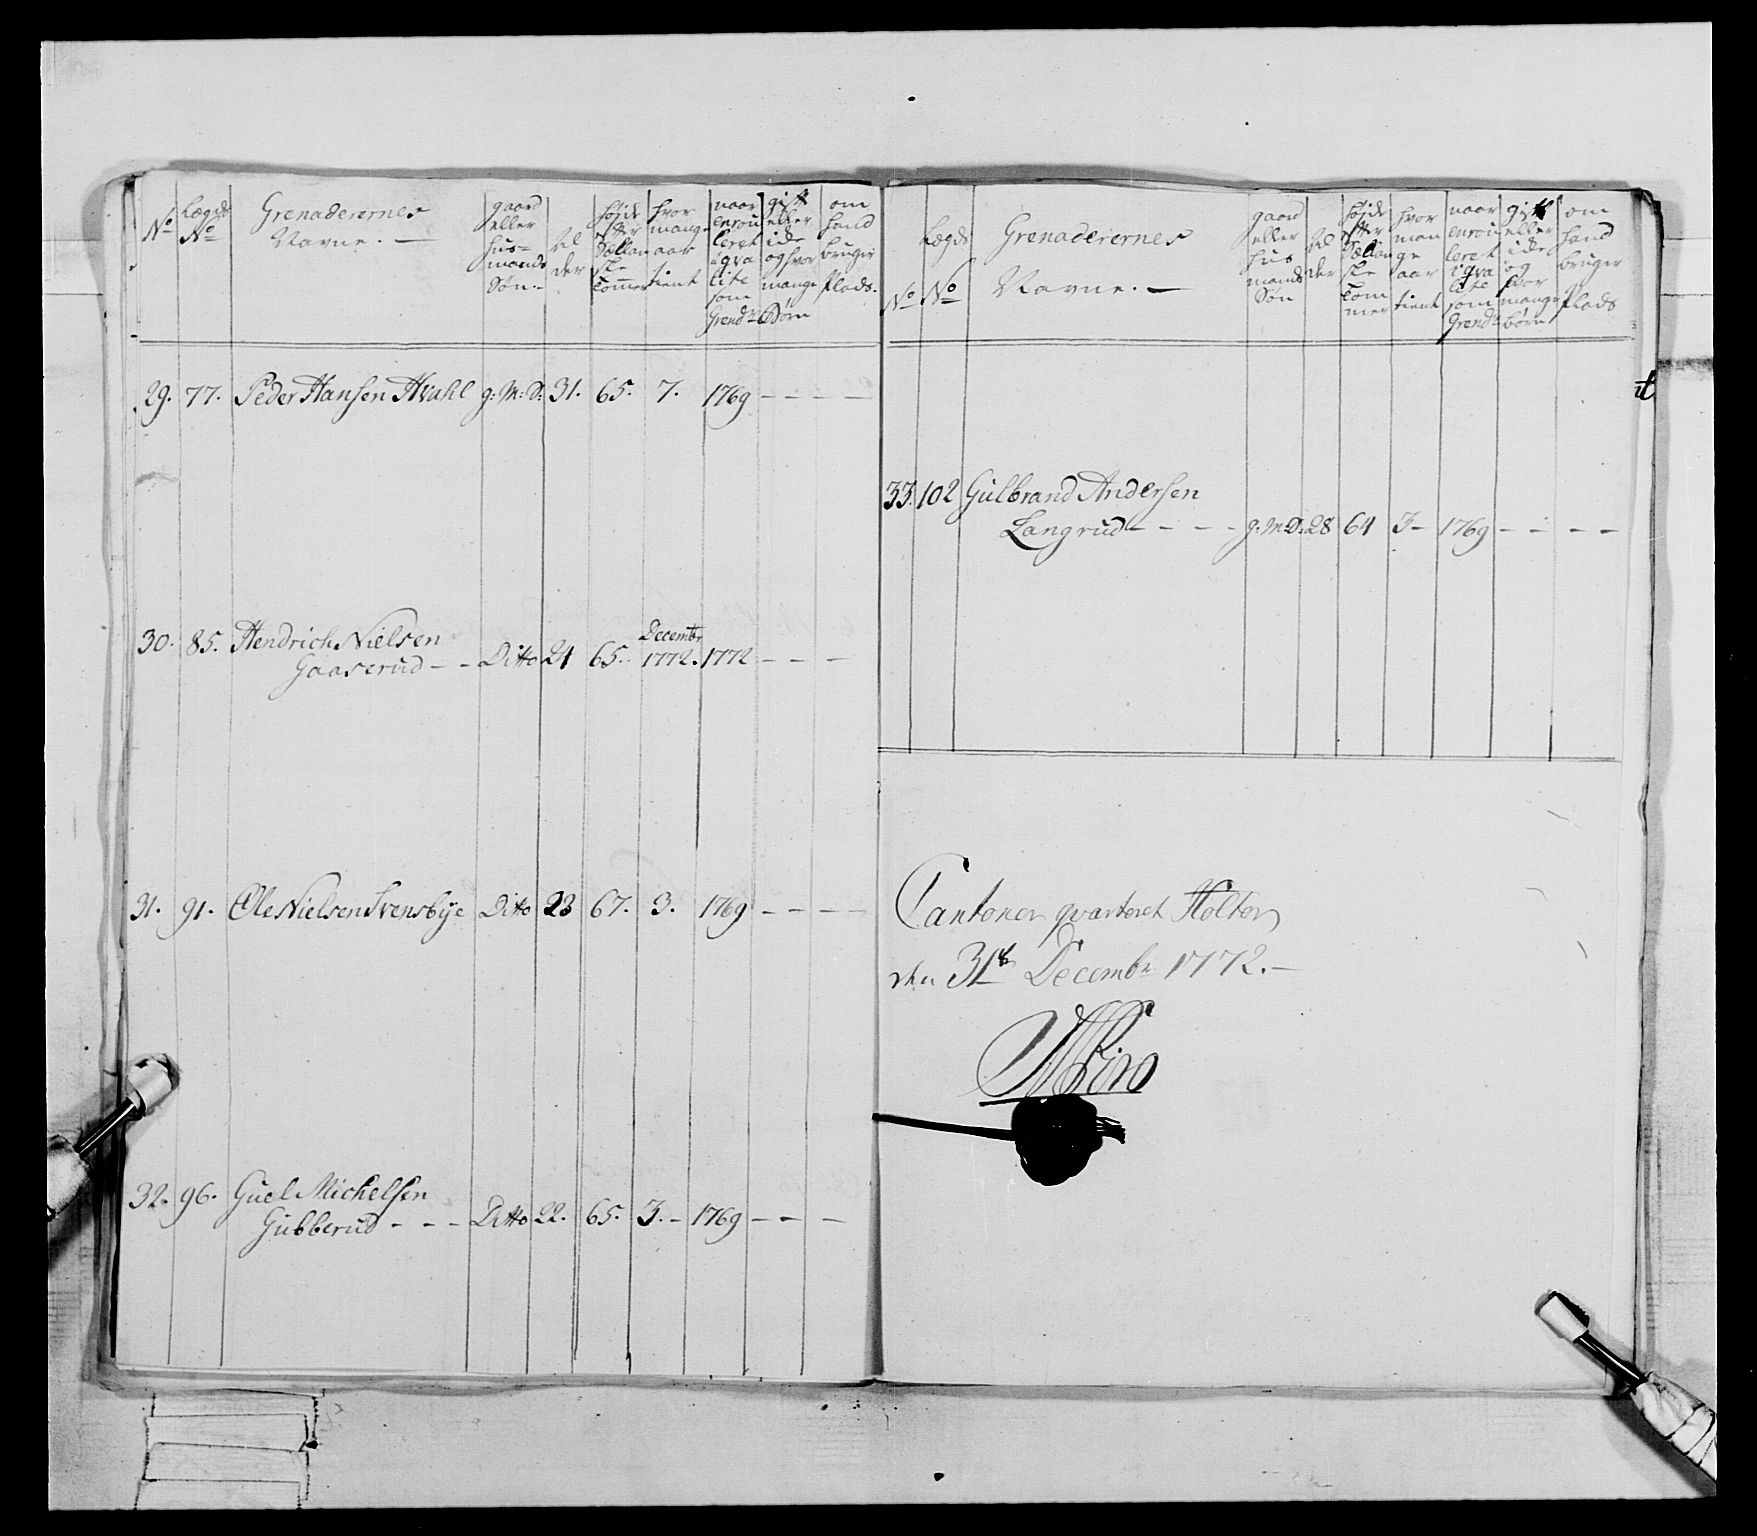 No
Lægds No
Grenaderernes Navne. —
gaard eller hus= mands Søn.-
Al der
højde efter Sællan ske Tommer
hvor mange aar tient
naar enrou leret i qva lite som Grendr
gift eller ide og hvor mange Børn
om hand bruger Plads.
29. 77. Peder Hansen Hvahl g: M: S: 31. 65. 7. 1769 – – – –
30. 85. Hendrich Nielsen
Gaaserud – – Ditto 24 65. Decembr 1772. 1772 – – –
31. 91. Ole Nielsen Svensbye Ditto 23 67. 3. 1769 – – – –
32. 96. Guel Michelsen
Gubberud – – – Ditto 22. 65. 3. – 1769 – – –
No
Lægds No
Grenaderernes Navne. —
gaard eller hus mands Søn
Al der
højde efter Sællan ske Tom mer
hvor man ge aar tient
naar enrou leret i qva lite som Grendr
gift eller ide og hvor mange børn
om hand bruger Plads
33. 102 Gulbrand Andersen
Langrud – – – – g: M: S: 28 64 3 – 1769 – – – –
Cantoner qvarteret Holter
den 31te Decembr 1772. –